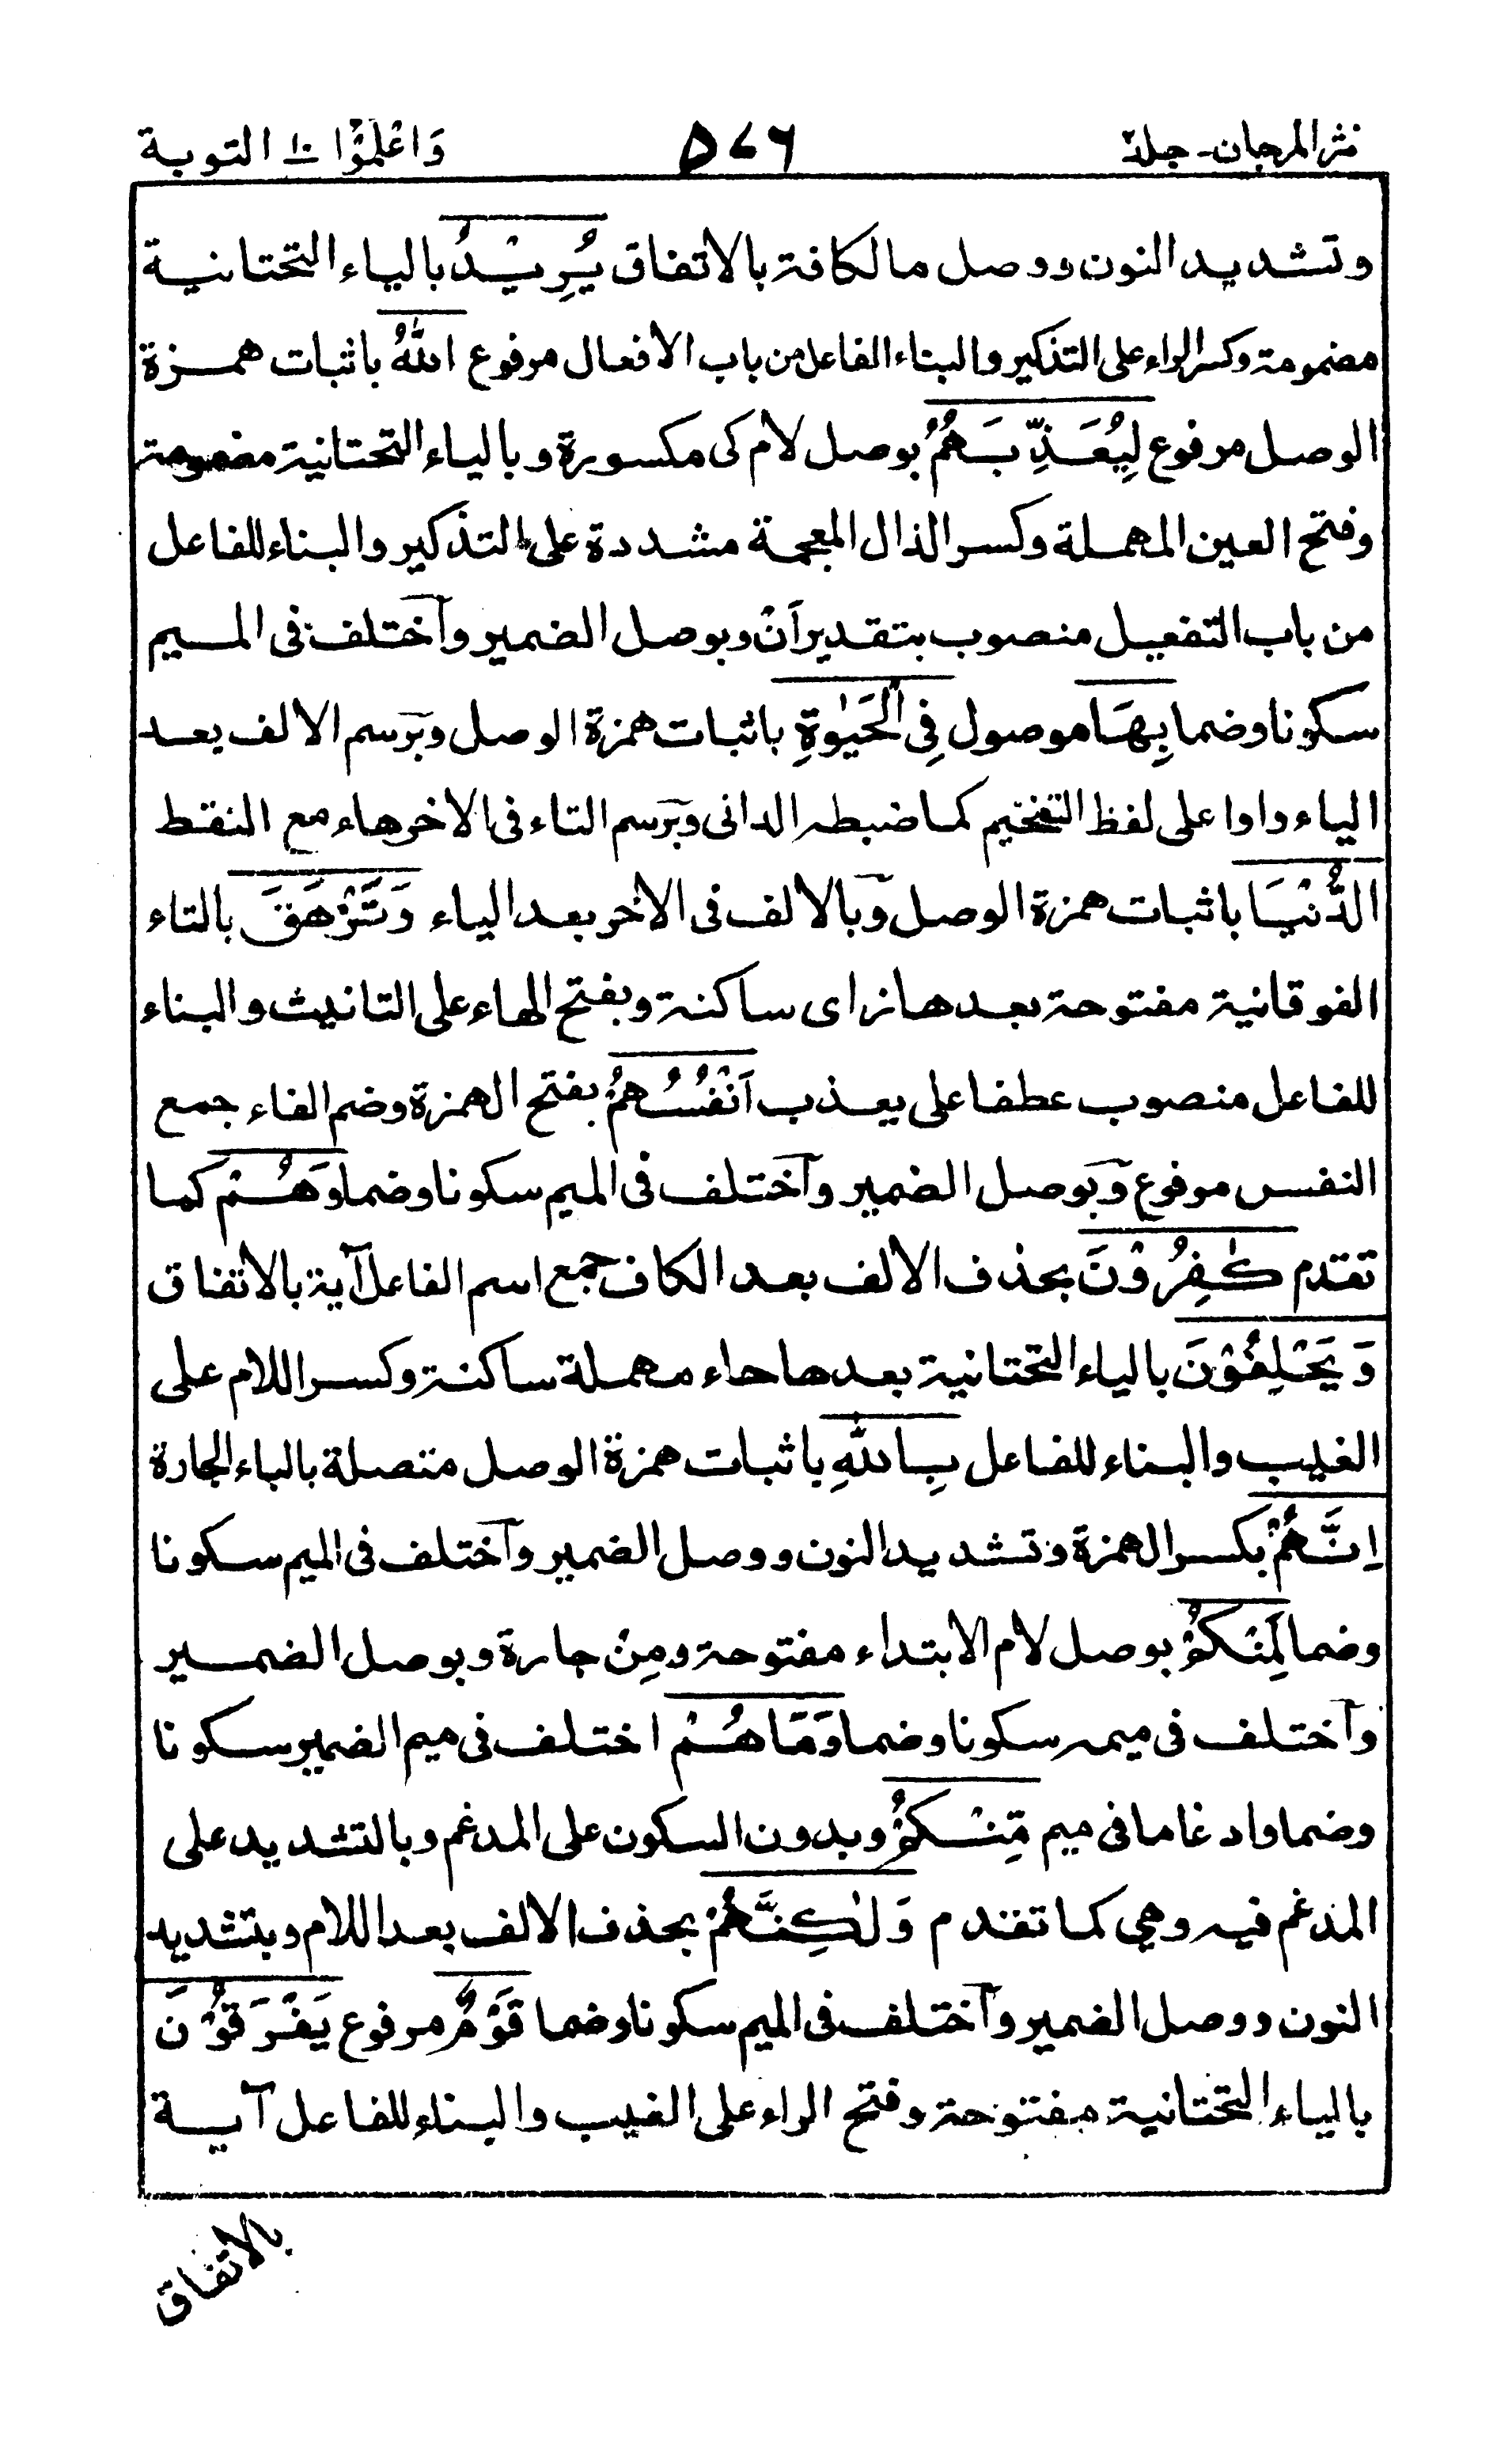 نثر المرجان - جلد٢
٥٧٦
وَاعْلَمُوْا ١٠ التوبة
وتشديد النون ووصل ما الكافة بالاتفاق يُرِيْدُ بالياء التحتانية
مضمومة وكسر الراء على التذكير والبناء الفاعل من باب الافعال مرفوع اللهُ باثبات همزة
الوصل مرفوع لِيُعَذِّبَهُمْ بوصل لام كى مكسورة وبالياء التحتانية مضمومة
وفتح العين المهملة وكسر الذال المعجمة مشددة على التذكير والبناء للفاعل
من باب التفعيل منصوب بتقدير اَنْ وبوصل الضمير وآختلف فى الميم
سكونا وضما بِهَا موصول فِى الْحَيٰوةِ باثبات همزة الوصل وبرسم الالف بعد
الياء واوا على لفظ التفخيم كما ضبطه الدانى وبرسم التاء فى الاخر هاء مع النقط
الدُّنْيَا باثبات همزة الوصل وبالالف فى الاخر بعد الياء وَتَزْهَقَ بالتاء
الفوقانية مفتوحة بعدها زاى ساكنة وبفتح الهاء على التانيث والبناء
للفاعل منصوب عطفا على يعذب اَنْفُسُهُمْ بفتح الهمزة وضم الفاء جمع
النفس مرفوع وبوصل الضمير وآختلف فى الميم سكونا وضما وَهُمْ كما
تقدم كٰفِرُوْنَ بحذف الالف بعد الكاف جمع اسم الفاعل آية بالاتفاق
وَيَحْلِفُوْنَ بالياء التحتانية بعدها حاء مهملة ساكنة وكسر اللام على
الغيب والبناء للفاعل بِاللهِ باثبات همزة الوصل متصلة بالباء الجارة
اِنَّهُمْ بكسر الهمزة وتشديد النون ووصل الضمير وآختلف فى الميم سكونا
وضما لَمِنْكُمْ بوصل لام الابتداء مفتوحة ومِنْ جارة وبوصل الضمير
وآختلف فى ميمه سكونا وضما وَمَا هُمْ اختلف فى ميم الضمير سكونا
وضما وادغاما فى ميم مِّنْكُمْ وبدون السكون على المدغم وبالتشديد على
المدغم فيه وهي كما تقدم وَلٰكِنَّهُمْ بحذف الالف بعد اللام وبتشديد
النون ووصل الضمير وآختلف فى الميم سكونا وضما قَوْمٌ مرفوع يَفْرَقُوْنَ
بالياء التحتانية مفتوحة وفتح الراء على الغيب والبناء للفاعل آية
بالاتفاق